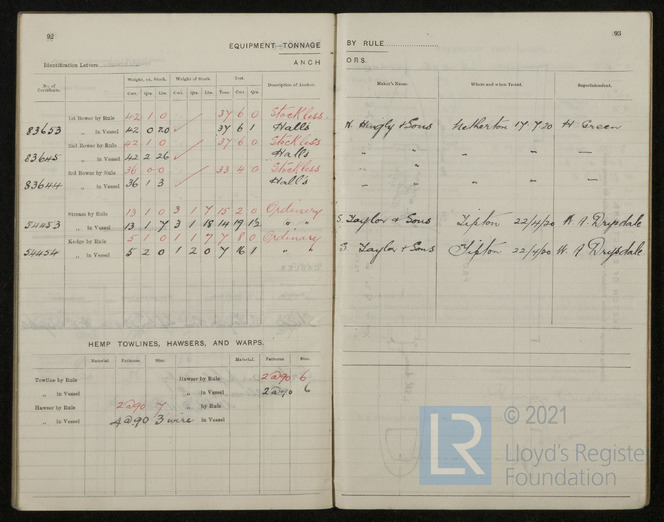 92
93
EQUIPMENT TONNAGE BY RULE
Identification Letters
ANCHORS.
No. of Certificate. Weight, ex. Stock. Weight of Stock. Test. Description of Anchor. Maker's Name. Where and when Tested. Superintendent.
Cwt. Qrs. Lbs. Cwt. Qrs. Lbs. Tons. Cwt. Qrs.
1st Bower by Rule 42 1 0 37 6 0 Stockless
83653 „ in Vessel 42 0 20 37 6 1 Halls N. Hingly & Sons Netherton 17.7.20 H Green
2nd Bower by Rule 42 1 0 37 6 0 Stockless
83645 „ in Vessel 42 2 26 Halls „ „ „ „ „
3rd Bower by Rule 36 0 0 33 4 0 Stockless
83644 „ in Vessel 36 1 3 Hall's „ „ „ „ „
Stream by Rule 13 1 0 3 1 7 15 2 0 Ordinary
54453 „ in Vessel 13 1 7 3 1 18 14 19 1½ „ „ S. Taylor & Sons Tipton 22/4/20 W A Drysdale
Kedge by Rule 5 1 0 1 1 7 7 8 0 Ordinary
54454 „ in Vessel 5 2 0 1 2 0 7 16 1 „ „ S Taylor & Sons Tipton 22/4/20 W. A Drysdale
HEMP TOWLINES, HAWSERS, AND WARPS.
Material. Fathoms. Size. Material. Fathoms. Size.
Towline by Rule Hawser by Rule 2@90 6
„ in Vessel „ in Vessel 2@90 6
Hawser by Rule 2@90 7 „ by Rule
„ in Vessel 4@90 3 wire „ in Vessel
LR
© 2021
Lloyd's Register
Foundation